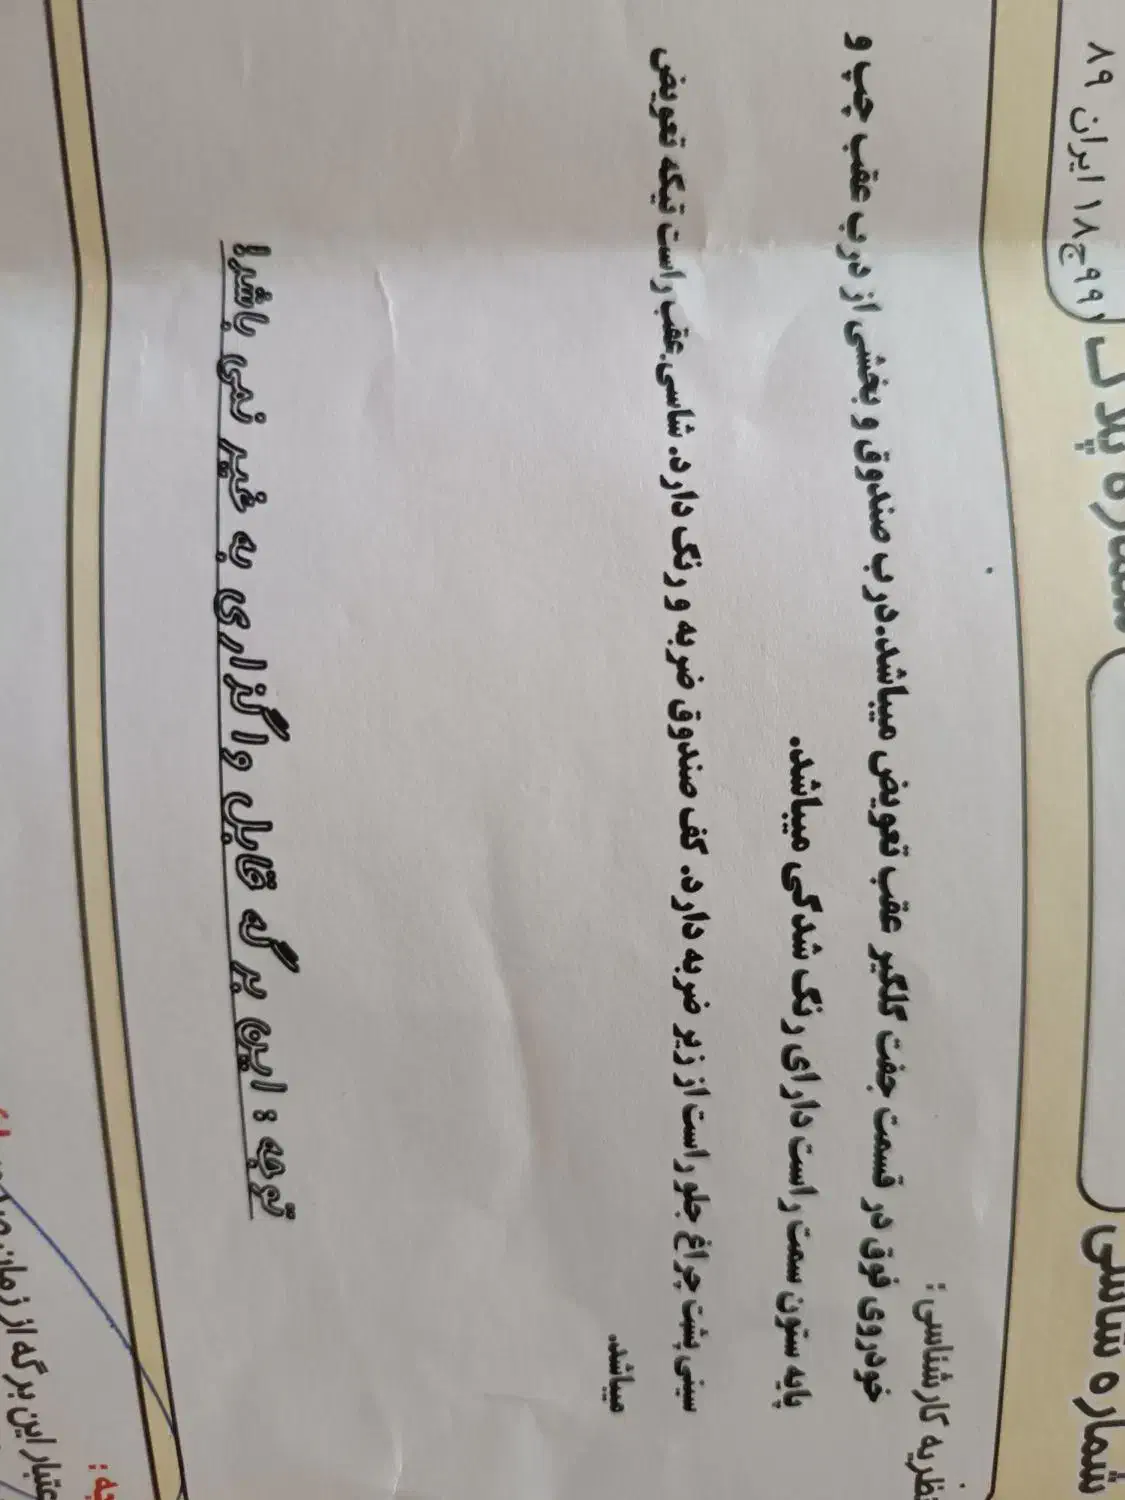 شماره شاسی
شماره پلاک ۹۹ج۱۸ ایران ۸۹
نظریه کارشناسی :
خودروی فوق در قسمت جفت گلگیر عقب تعویض میباشد.درب صندوق و بخشی از درب عقب چپ و
پایه ستون سمت راست دارای رنگ شدگی میباشد.
سینی پشت چراغ جلو راست از زیر ضربه دارد. کف صندوق ضربه و رنگ دارد. شاسی عقب راست تیکه تعویض
میباشد.
توجه : این برگه قابل واگزاری به غیر نمی باشد!
عتبار این برگه از زمان